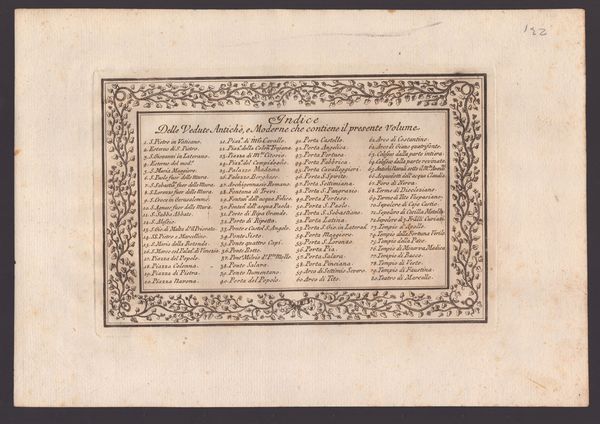 132
Indice
Delle Vedute Antiche, e Moderne che contiene il presente Volume.
1. S. Pietro in Vaticano.
2. Esterno di S. Pietro.
3. S. Giovanni in Laterano.
4. Esterno del med.º
5. S. Maria Maggiore.
6. S. Paolo fuor delle Mura.
7. S. Sebastiº fuor delle Mura.
8. S. Lorenzo fuor delle Mura.
9. S. Croce in Gerusalemme.
10. S. Agnese fuor delle Mura.
11. S. Sabba Abbate.
12. S. Alessio.
13. S. Gio. di Malta d'il Priorato
14. SS. Pietro e Marcellino.
15. S. Maria della Rotonda.
16. S. Marco col Palaz. di Venezia
17. Piazza del Popolo.
18. Piazza Colonna.
19. Piazza di Pietra.
20. Piazza Navona.
21. Piaz.ª di M.te Cavallo.
22. Piaz.ª della Colon.ª Trajana.
23. Piazza di M.te Citorio.
24. Piaz.ª del Campidoglio.
25. Palazzo Madama.
26. Palazzo Borghese.
27. Archiginnasio Romano.
28. Fontana di Trevi.
29. Fontan.ª dell' acqua Felice.
30. Fontan.ª dell' acqua Paola.
31. Porto di Ripa Grande.
32. Porto di Ripetta.
33. Ponte e Castel S. Angelo.
34. Ponte Sisto.
35. Ponte quattro Capi.
36. Ponte Rotto.
37. Pont' Molvio d.º P.te Mollo.
38. Ponte Salara.
39. Ponte Numentano.
40. Porta del Popolo.
41. Porta Castello.
42. Porta Angelica.
43. Porta Pertusa.
44. Porta Fabbrica.
45. Porta Cavalleggieri.
46. Porta S. Spirito.
47. Porta Settimiana.
48. Porta S. Pangrazio.
49. Porta Portese.
50. Porta S. Paolo.
51. Porta S. Sebastiano.
52. Porta Latina.
53. Porta S. Gio. in Laterano
54. Porta Maggiore.
55. Porta S. Lorenzo.
56. Porta Pia.
57. Porta Salara.
58. Porta Pinciana.
59. Arco di Settimio Severo.
60. Arco di Tito.
61. Arco di Costantino.
62. Arco di Giano quatrifonte.
63. Coliseo dalla parte intiera.
64. Coliseo dalla parte rovinata.
66. Aquedotti dell' acqua Claudia.
67. Foro di Nerva.
68. Terme di Diocleziano
69. Terme di Tito Vespasiano.
70. Sepolcro di Cajo Cestio.
71. Sepolcro di Cecilia Metella.
72. Sepolcro de' Fratelli Curiazi.
73. Tempio d'Apollo.
74. Tempio della Fortuna Virile.
75. Tempio della Pace.
76. Tempio di Minerva Medica.
77. Tempio di Bacco.
78. Tempio di Veste.
79. Tempio di Faustina.
80. Teatro di Marcello.